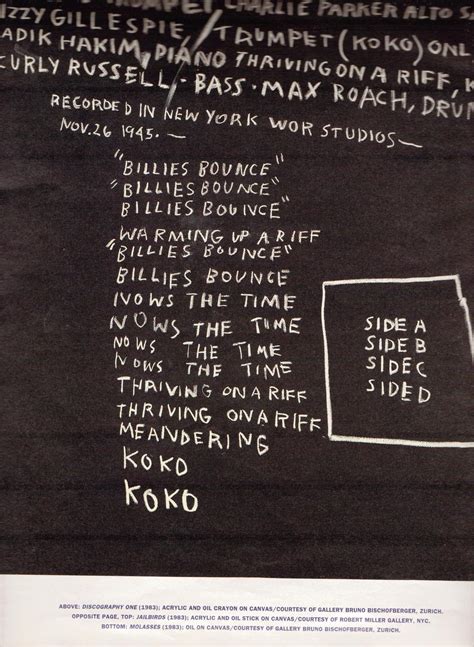 CHARLIE PARKER ALTO S
IZZY GILLESPIE / TRUMPET (KOKO) ONE
ADIK HAKIM, PIANO THRIVING ON A RIFF, K
CURLY RUSSELL · BASS · MAX ROACH, DRUM
RECORDED IN NEW YORK WOR STUDIOS—
NOV. 26 1945.—
"BILLIES BOUNCE"
"BILLIES BOUNCE"
BILLIES BOUNCE"
WARMING UP A RIFF
"BILLIES BOUNCE"
BILLIES BOUNCE
NOWS THE TIME
NOWS THE TIME
NOWS THE TIME
NOWS THE TIME
THRIVING ON A RIFF
THRIVING ON A RIFF
MEANDERING
KOKO
KOKO
SIDE A
SIDE B
SIDE C
SIDE D
ABOVE: DISCOGRAPHY ONE (1983); ACRYLIC AND OIL CRAYON ON CANVAS/COURTESY OF GALLERY BRUNO BISCHOFBERGER, ZURICH.
OPPOSITE PAGE, TOP: JAILBIRDS (1983); ACRYLIC AND OIL STICK ON CANVAS/COURTESY OF ROBERT MILLER GALLERY, NYC.
BOTTOM: MOLASSES (1983); OIL ON CANVAS/COURTESY OF GALLERY BRUNO BISCHOFBERGER, ZURICH.